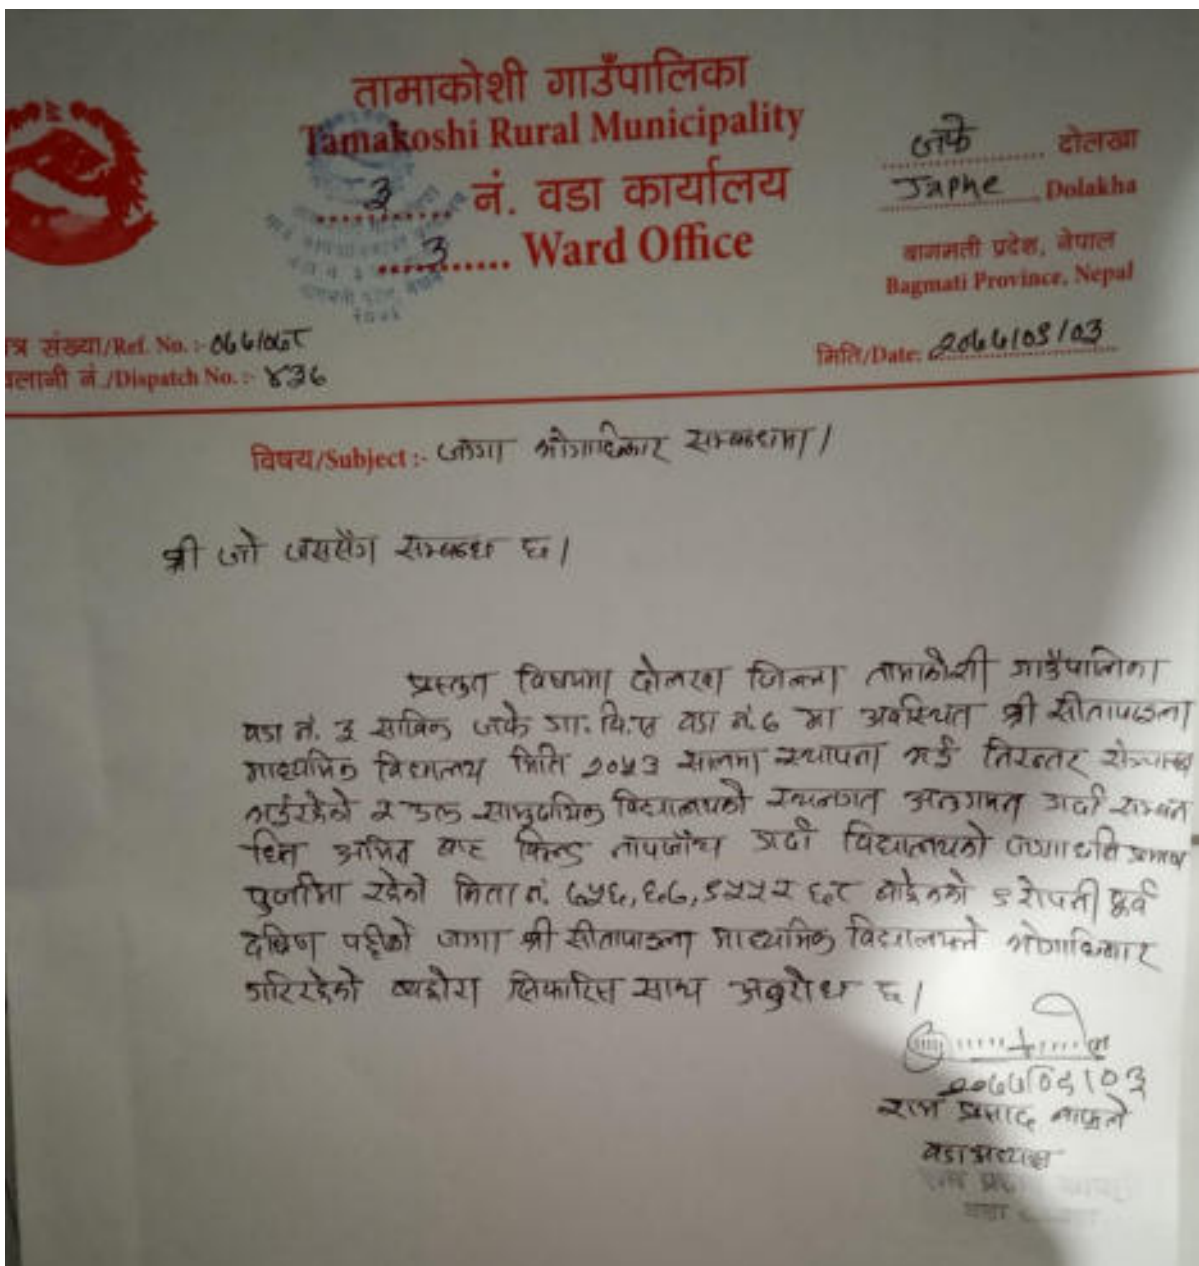 तामाकोशी गाउँपालिका
Tamakoshi Rural Municipality
३ नं. वडा कार्यालय
3 Ward Office
जफे दोलखा
Japhe, Dolakha
बागमती प्रदेश, नेपाल
Bagmati Province, Nepal
त्र संख्या/Ref. No. :- ०७७/०७८
लानी नं./Dispatch No. :- ४३७
मिति/Date: २०७७/०९/०३
विषय/Subject :- जग्गा भोगाधिकार सम्बन्धमा।
श्री जो जससँग सम्बन्ध छ।
प्रस्तुत विषयमा दोलखा जिल्ला तामाकोशी गाउँपालिका
वडा नं. ३ साविक जफे गा.वि.स वडा नं. ७ मा अवस्थित श्री सीतापाइला
माध्यमिक विद्यालय मिति २०५३ सालमा स्थापना भई निरन्तर
र उक्त सामुदायिक विद्यालयको स्थलगत अनुगमन गर्दा
अमिन बाट नापजाँच गर्दा विद्यालयको जग्गा धनि
पुर्जामा रहेको कित्ता नं. रोपनी पूर्व
दक्षिण पट्टीको जग्गा श्री सीतापाइला माध्यमिक विद्यालयले भोगाधिकार
गरिरहेको व्यहोरा सिफारिस साथ अनुरोध छ।
२०७७/०९/०३
राम प्रसाद काफ्ले
वडा अध्यक्ष